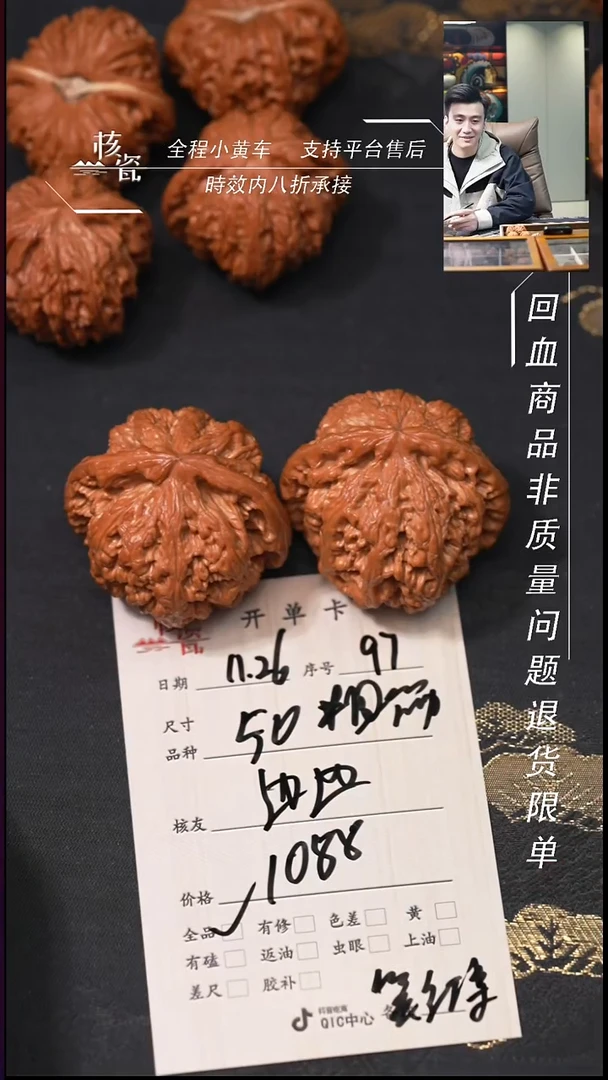 核瓷
全程小黄车 支持平台售后
時效内八折承接
回血商品非质量问题退货限单
开单卡
日期 11.26 序号 97
尺寸
品种 50 粗筋
核友
价格 1088
全品 有修 色差 黄
有磕 返油 虫眼 上油
差尺 胶补
QIC中心